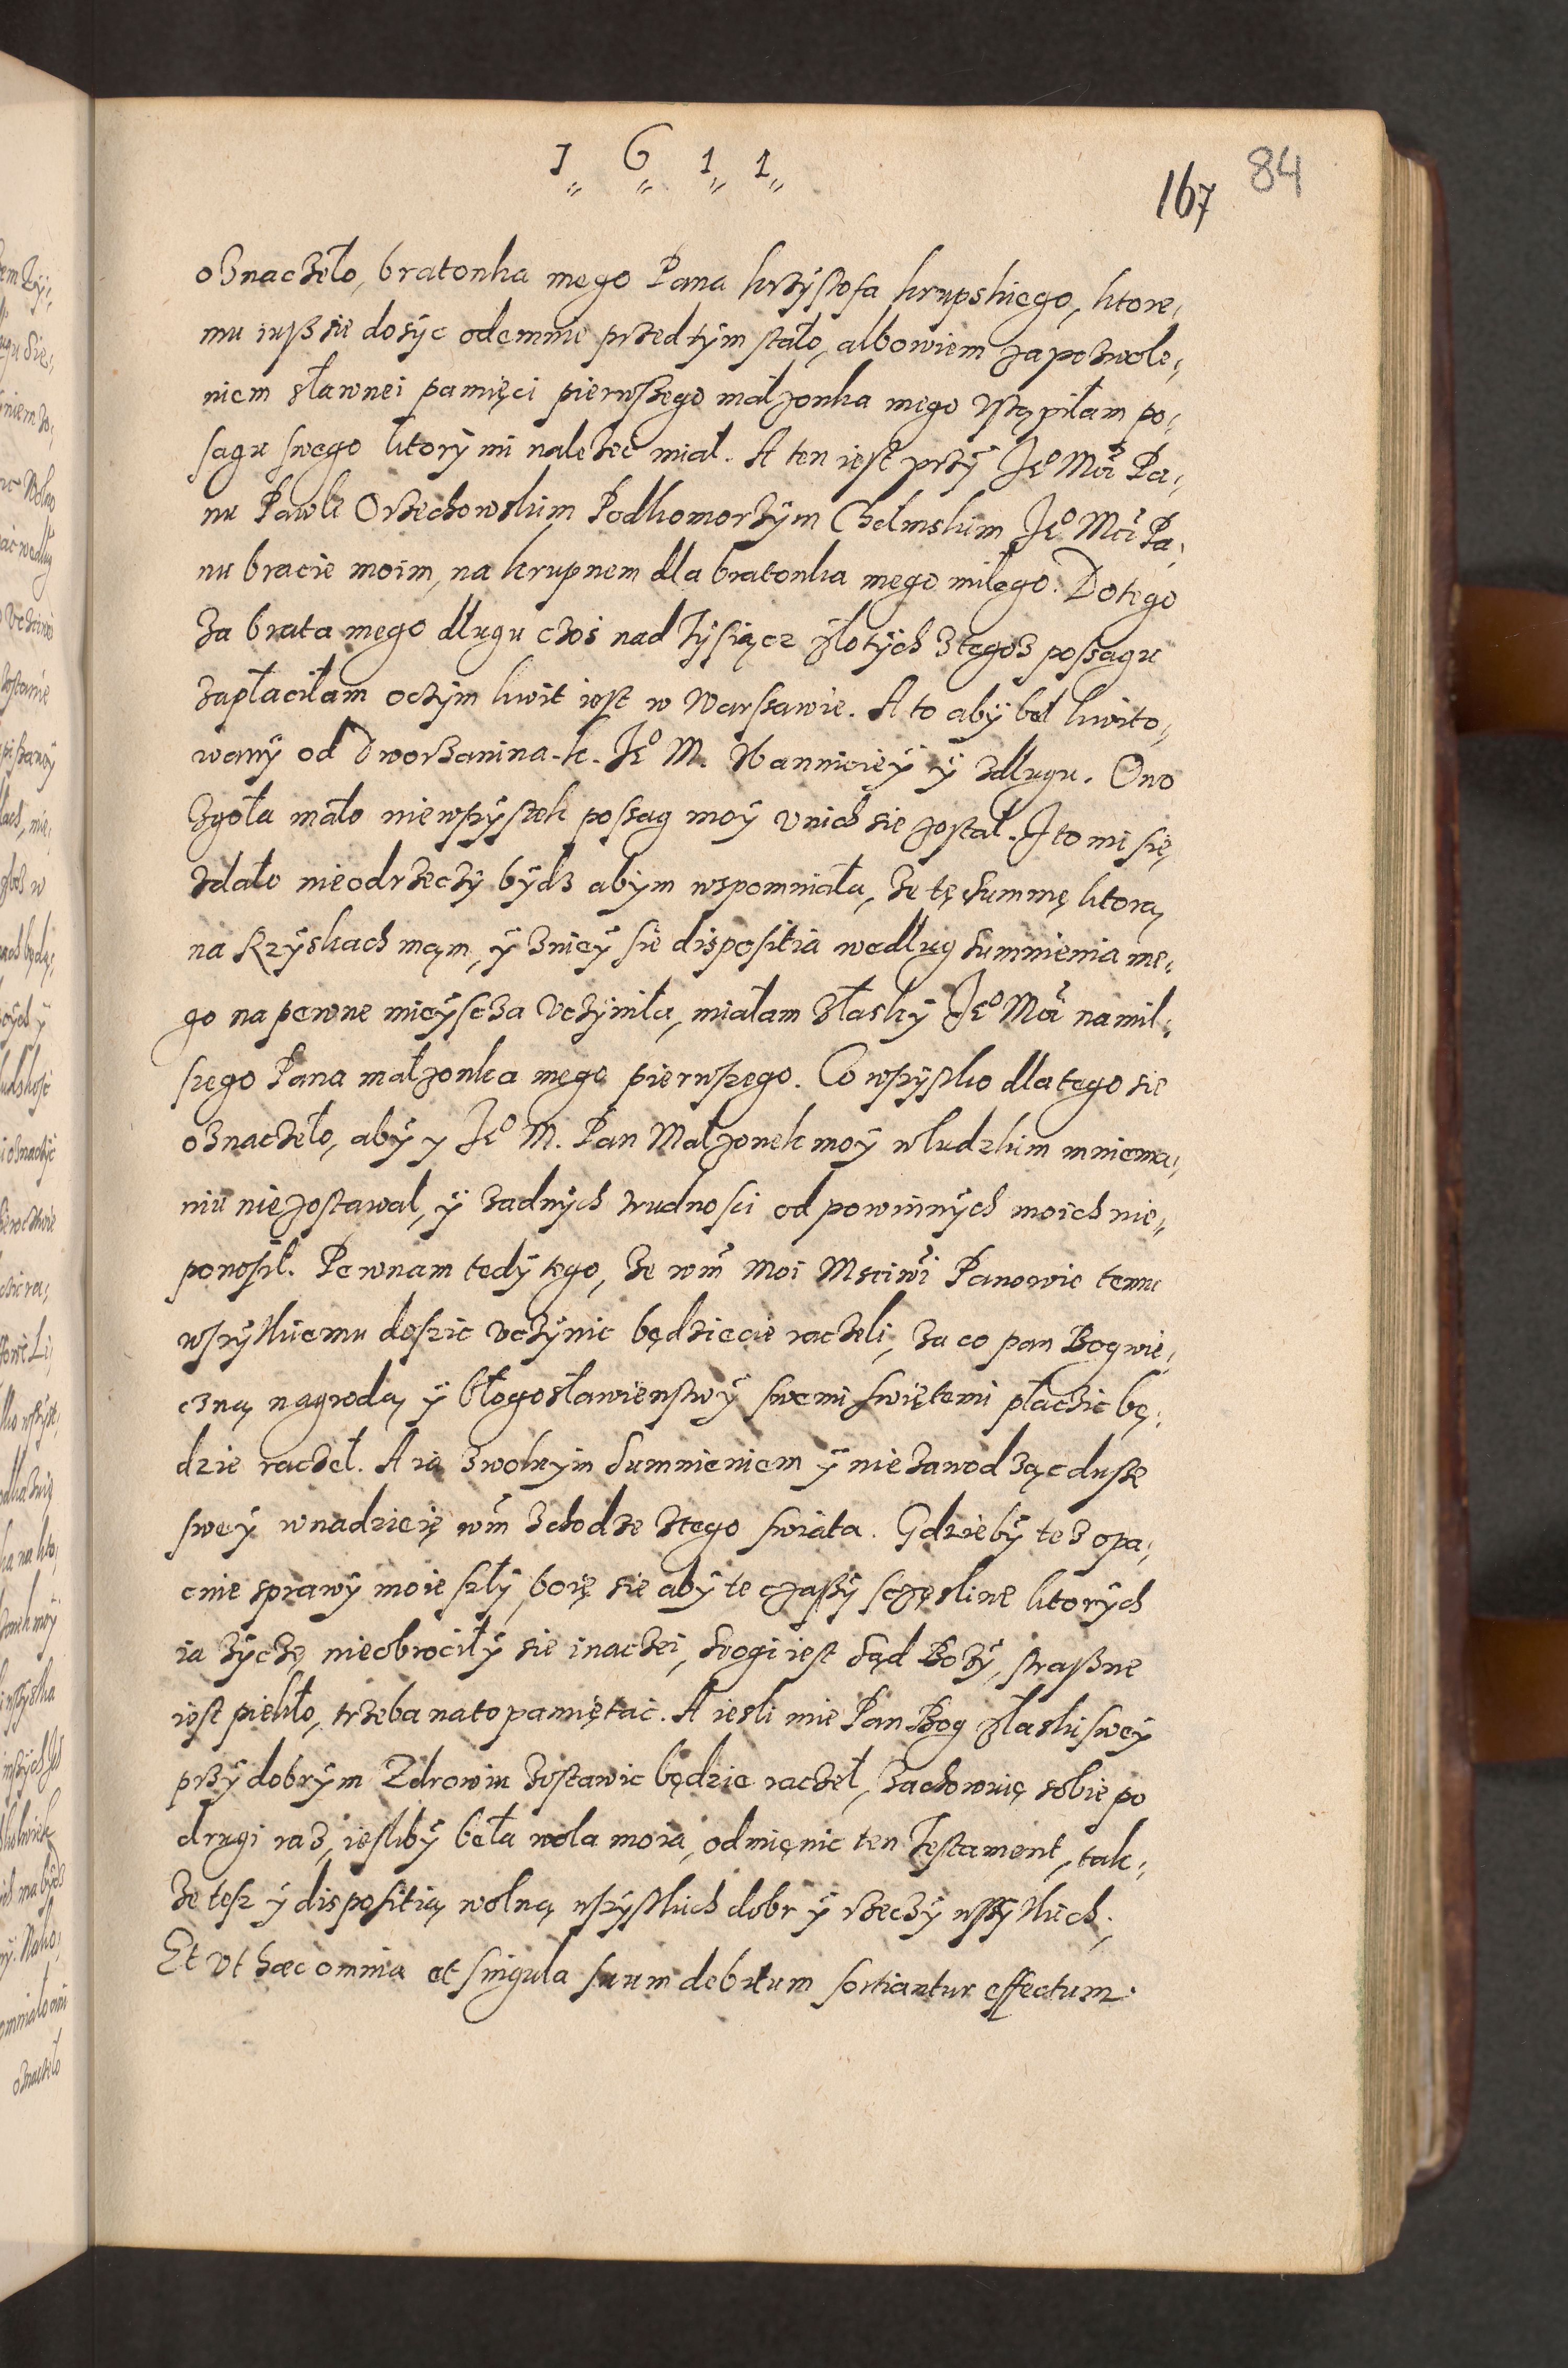 1 6 1 1
167 84
oznaczeło, bratonka mego Pana krzÿstofa krupskiego, ktore,
mu iusz sie dosÿc odemnie przed tÿm stało, albowiem za pozwole,
niem sławnei pamięci pierwszego małzonka mego vstąpiłam po,
sagu swego ktorÿ mi nalezec miał. A ten iest przÿ Jeº Mći Pa,
nu Pawle Orzechowskim Podkomorzÿm Chełmskim Jeº Mći Pa,
nu bracie moim, na krupnem dla bratonka mego miłego. Do tego
za brata mego długu czos nad tÿsiącz złotÿch z tegoz possagu
zapłaciłam oczÿm kwit iest w Warssawie. A to abÿ beł kwito,
wanÿ od Dworzanina k. Jeº M. Wannicieÿ ÿ z długu. Ono
zgoła mało nie wszÿstek possag moÿ v nich sie został. I to mi się
zdało nieodrzeczÿ bÿdz abÿm wspomniała, ze tę summę ktorą
na Krzÿskach mąm, ÿ znieÿ sie dispositia według sumnienia me,
go na pewne mieÿscza vczÿniła, miałam złaskÿ Jeº Mći namil,
szego Pana małzonka mego pierwszego. Co wszÿstko dla tego sie
oznaczeło, abÿ y Jeº M. Pan Małzonek moÿ w ludzkim mniema,
niu nie zostawał, ÿ zadnÿch trudnosci od powinnÿch moich nie,
ponosił. Pewnam tedÿ tego, ze wm̃ Moi Msciwi Panowie temu
wszÿtkiemu doszic vczÿnic będziecie raczeli, za co pan Bog wie,
czną nagrodą ÿ błogosławienstwÿ swemi swiętemi płaczic bę,
dzie raczeł. A ia z wolnÿm sumnieniem ÿ nie zawodząc dusze
sweÿ w nadzieię wm̃ zchodze z tego swiata. Gdziebÿ tez opa,
cnie sprawÿ moie szłÿ, boię sie abÿ te czassÿ sczęsliwe ktorÿch
ia zÿczę nieobrociłÿ sie inaczei, srogi iest sąd Bozÿ, straszne
iest piekło, trzeba na to pamiętac. A iesli mie Pan Bog złaski sweÿ
przÿ dobrÿm Zdrowiu zostawic będzie raczeł, zachowuię sobie po
drugi raz, iesliby beła wola moia, odmięnic ten Testament, tak,
ze tesz ÿ dispositią wolną wszÿstkich dobr ÿ rzeczÿ wszÿtkich.
Et vt hæc omnia et singula suum debitum sortiantur effectum.